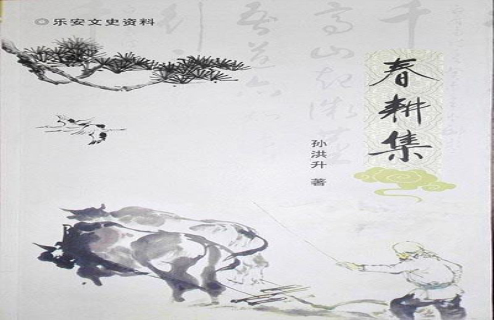 乐安文史资料
春耕集
孙洪升 著